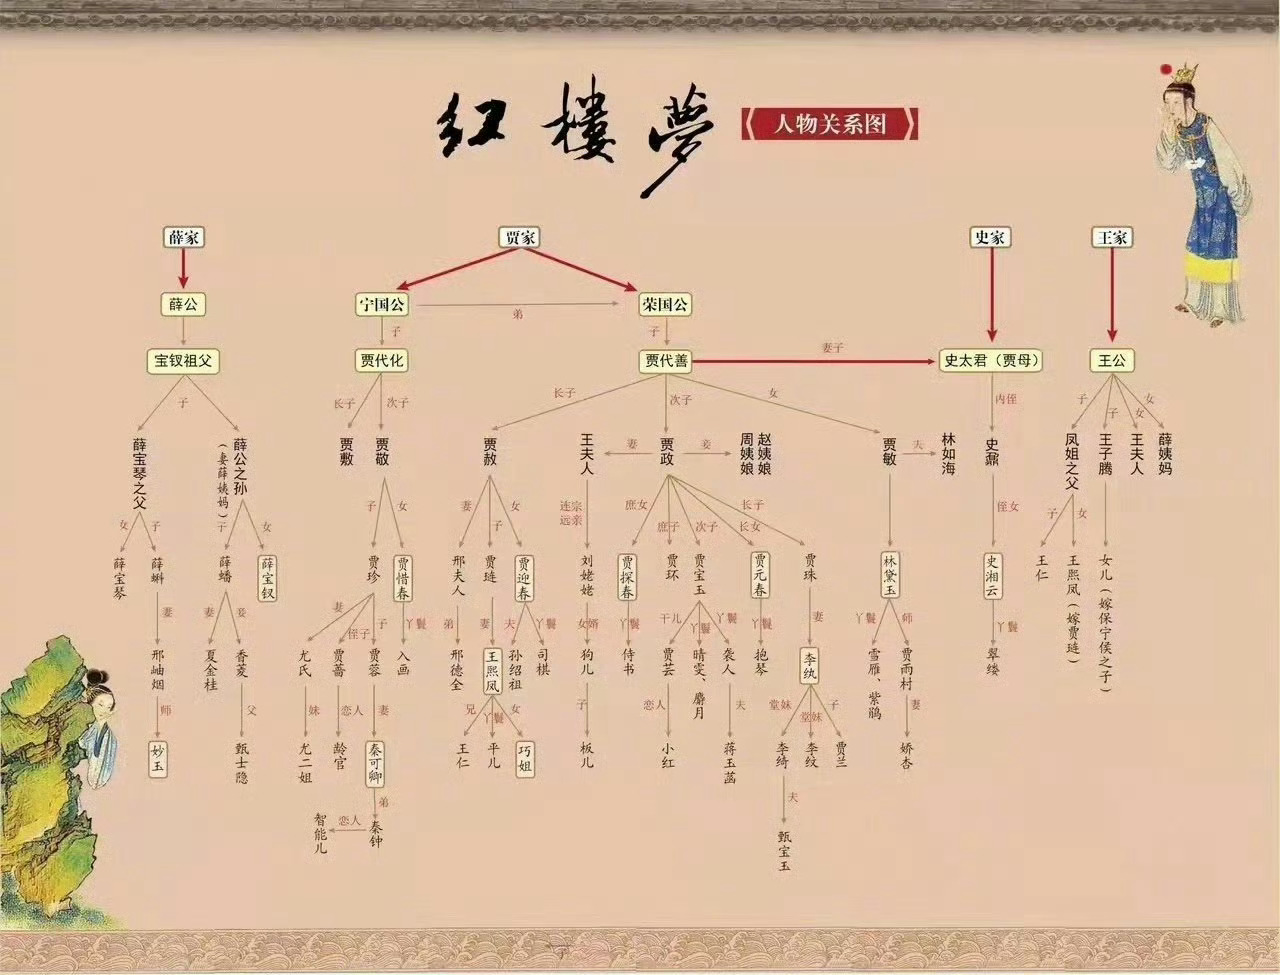 红楼夢
人物关系图
薛家
贾家
史家
王家
薛公
宁国公
弟
荣国公
子
子
宝钗祖父
贾代化
贾代善
妻子
史太君（贾母）
王公
子
长子
次子
长子
次子
女
内侄
子
子
女
女
薛宝琴之父
薛公之孙（妻薛姨妈）
贾敷
贾敬
贾赦
王夫人
妻
贾政
妾
周姨娘
赵姨娘
贾敏
夫
林如海
史鼐
凤姐之父
王子腾
王夫人
薛姨妈
女
子
子
女
子
女
妻
子
女
连宗远亲
庶女
庶子
次子
长女
长子
侄女
子
女
薛宝琴
薛蝌
薛蟠
薛宝钗
贾珍
贾惜春
邢夫人
贾琏
贾迎春
刘姥姥
贾探春
贾环
贾宝玉
贾元春
贾珠
林黛玉
史湘云
王仁
王熙凤（嫁贾琏）
女儿（嫁保宁侯之子）
妻
妻
妾
妻
侄子
子
丫鬟
弟
妻
夫
丫鬟
女婿
丫鬟
干儿
丫鬟
丫鬟
丫鬟
妻
丫鬟
师
丫鬟
邢岫烟
夏金桂
香菱
尤氏
贾蔷
贾蓉
入画
邢德全
王熙凤
孙绍祖
司棋
狗儿
侍书
贾芸
晴雯、麝月
袭人
抱琴
李纨
雪雁、紫鹃
贾雨村
翠缕
师
父
妹
恋人
妻
兄
丫鬟
女
子
恋人
夫
堂妹
堂妹
子
妻
妙玉
甄士隐
尤二姐
龄官
秦可卿
王仁
平儿
巧姐
板儿
小红
蒋玉菡
李绮
李纹
贾兰
娇杏
弟
夫
智能儿
恋人
秦钟
甄宝玉